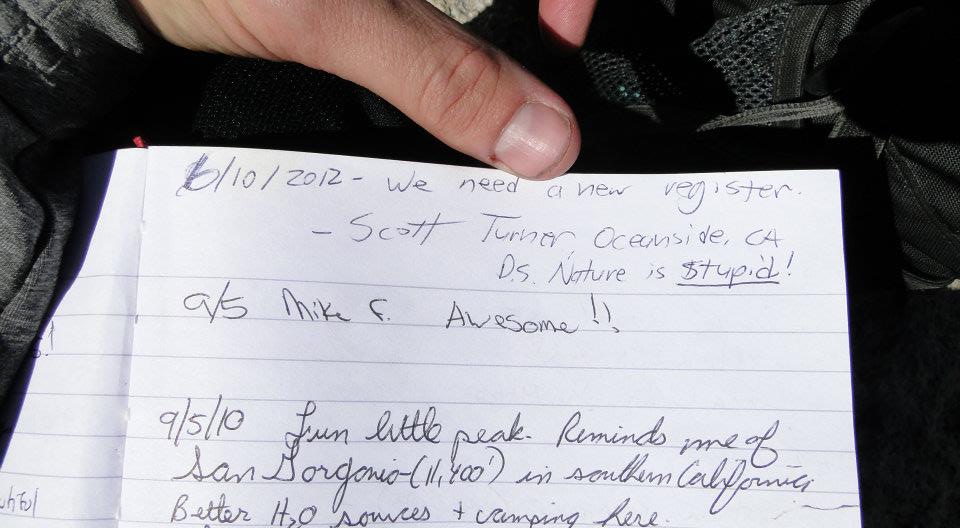 6/10/2012 - We need a new register.
- Scott Turner, Oceanside, CA
P.S. Nature is Stupid!
9/5 Mike F. Awesome!!
9/5/10 Fun little peak. Reminds me of
San Gorgonio-(11,400') in southern California.
Better H2O sources + camping here.